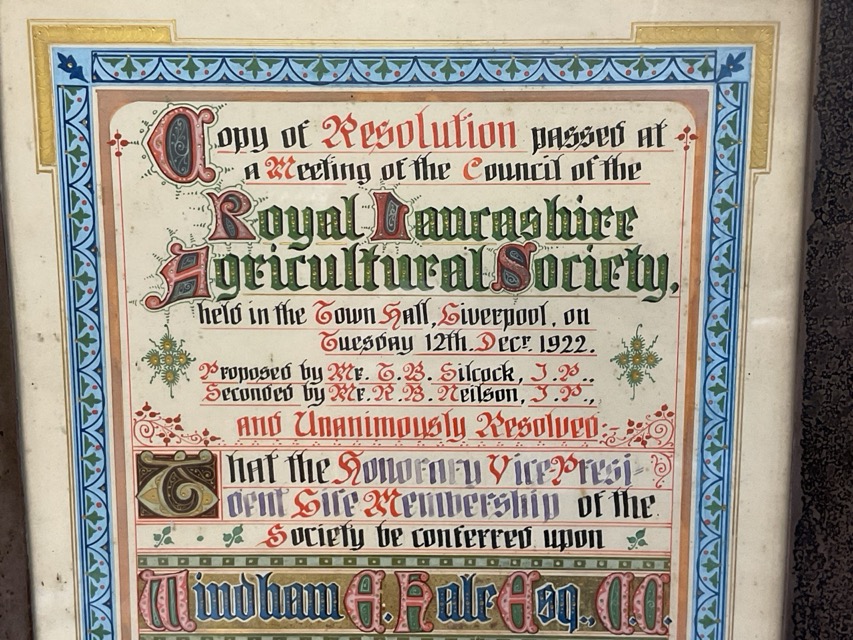 Copy of Resolution passed at
a Meeting of the Council of the
Royal Lancashire
Agricultural Society,
held in the Town Hall, Liverpool, on
Tuesday 12th. Decr. 1922.
Proposed by Mr. T. B. Silcock, J. P.,
Seconded by Mr. R. B. Neilson, J. P.,
and Unanimously Resolved:-
That the Honorary Vice Presi-
dent Life Membership of the
Society be conferred upon
Windham E. Hale Esq., C.C.